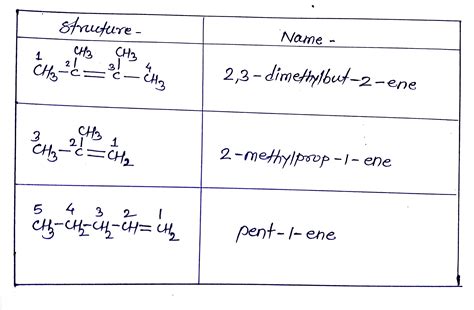 Structure -
Name -
CH3 CH3
1 2 3 4
CH3-C=C-CH3
2,3-dimethylbut-2-ene
CH3
3 2 1
CH3-C=CH2
2-methylprop-1-ene
5 4 3 2 1
CH3-CH2-CH2-CH=CH2
pent-1-ene